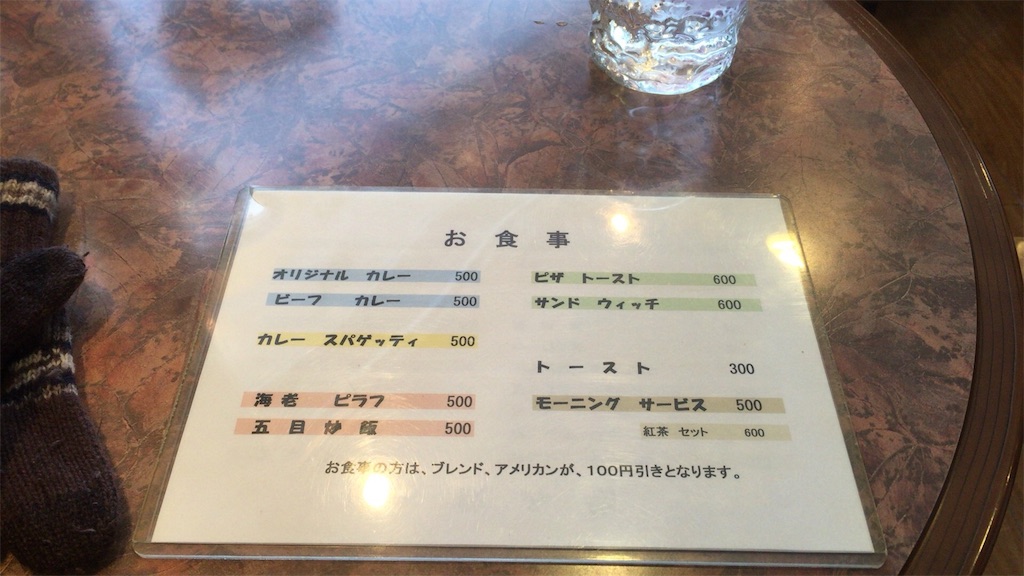 お食事
オリジナル カレー 500
ビーフ カレー 500
カレー スパゲッティ 500
海老 ピラフ 500
五目炒飯 500
ピザ トースト 600
サンド ウィッチ 600
トースト 300
モーニング サービス 500
紅茶 セット 600
お食事の方は、ブレンド、アメリカンが、100円引きとなります。